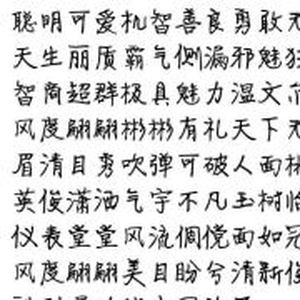 聪明可爱机智善良勇敢
天生丽质霸气侧漏邪魅
智商超群极具魅力温文
风度翩翩彬彬有礼天下
眉清目秀吹弹可破人面
英俊潇洒气宇不凡玉树临
仪表堂堂风流倜傥面如冠
风度翩翩美目盼兮清新